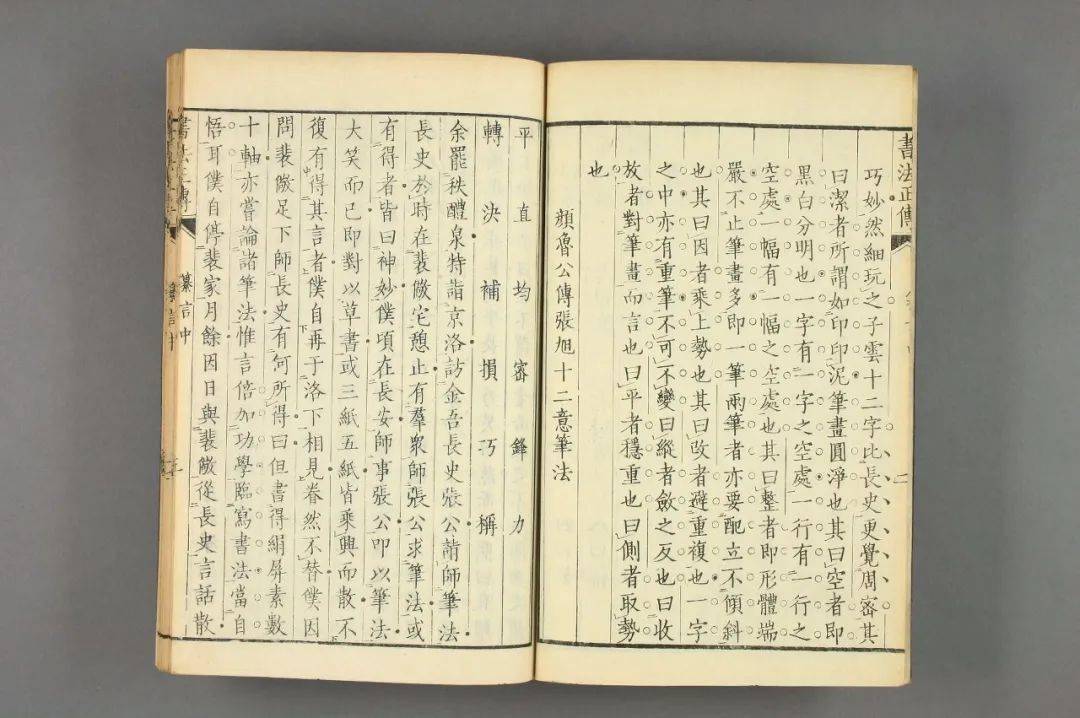 書法正傳
巧妙然細玩之子雲十二字比長史更覺周密其
曰潔者所謂如印印泥筆畫圓淨也其曰空者即
黑白分明也一字有一字之空處一行有一行之
空處一幅有一幅之空處也其曰整者即形體端
嚴不止筆畫多即一筆兩筆者亦要配立不傾斜
也其曰因者乘上勢也其曰改者避重複也一字
之中亦有重筆不可不變曰縱者斂之反也曰收
放者對筆畫而言也曰平者穩重也曰側者取勢
也
顏魯公傳張旭十二意筆法
平直均密鋒力
轉決補損巧稱
余罷秩醴泉特詣京洛訪金吾長史張公請師筆法
長史於時在裴儆宅憩止有羣衆師張公求筆法或
有得者皆曰神妙僕頃在長安師事張公叩以筆法
大笑而已即對以草書或三紙五紙皆乘興而散不
復有得其言者僕自再于洛下相見眷然不替僕因
問裴儆足下師長史有何所得曰但書得絹屏素數
十軸亦嘗論諸筆法惟言倍加功學臨寫書法當自
悟耳僕自停裴家月餘因日與裴儆從長史言話散
書法正傳
纂言中